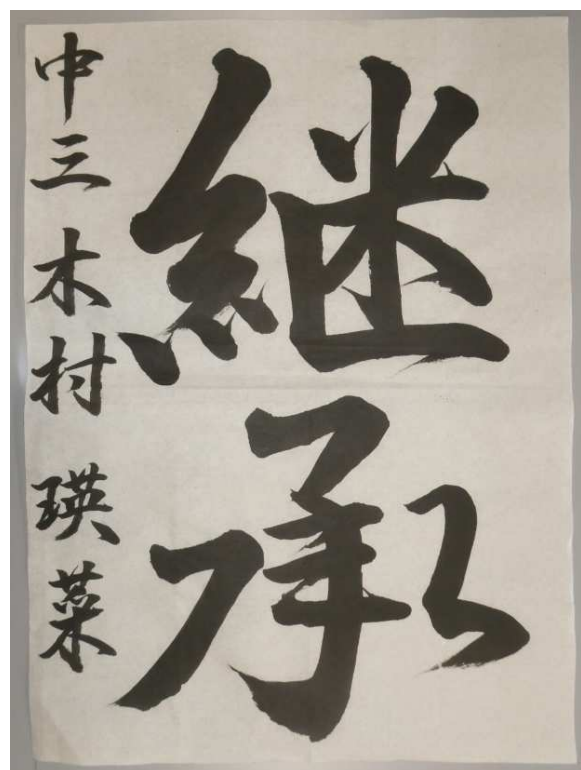 継承
中三 木村 瑛菜